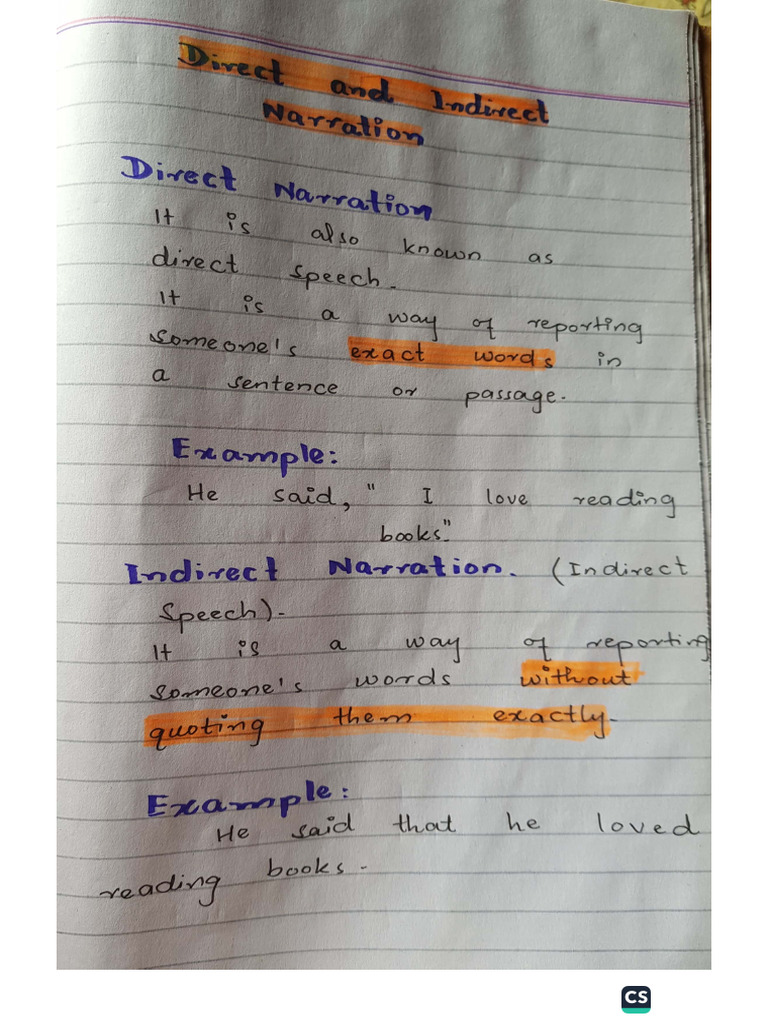 Direct and Indirect
Narration
Direct Narration
It is also known as
direct speech.
It is a way of reporting
someone's exact words in
a sentence or passage.
Example:
He said, " I love reading
books".
Indirect Narration. (Indirect
Speech).
It is a way of reporting
someone's words without
quoting them exactly.
Example:
He said that he loved
reading books.
CS